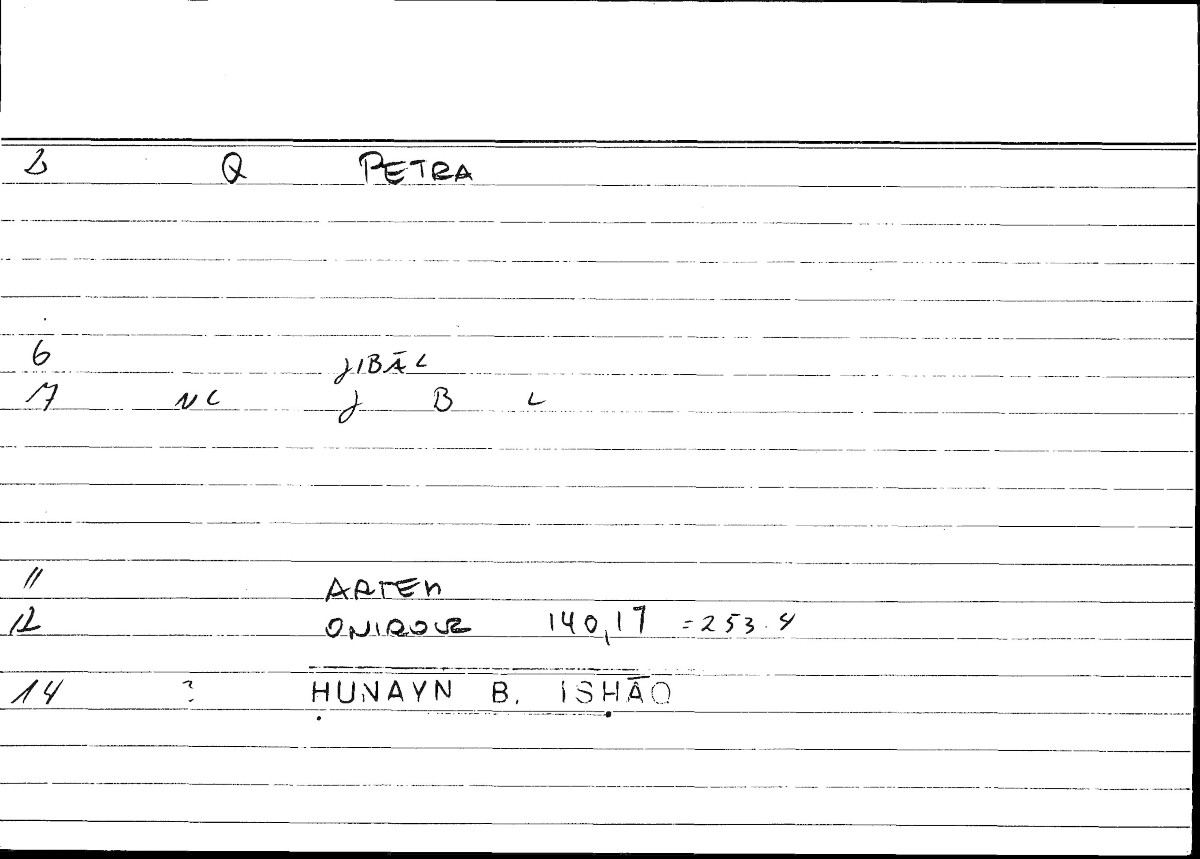 1 Q PETRA
6 JIBĀL
7 NC J B L
11 ARTEM
12 ONIROCR 140,17 = 253.4
14 ? ḤUNAYN B. ISḤĀQ